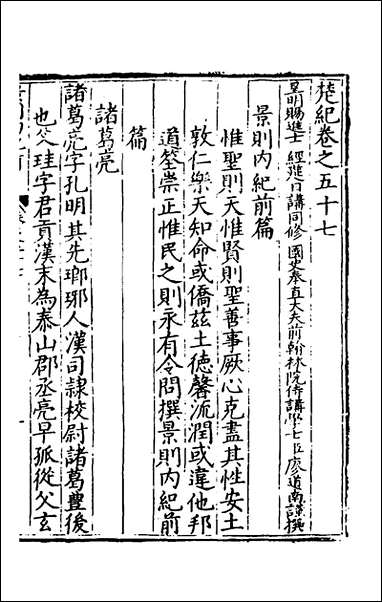 楚紀卷之五十七
皇明賜進士 經筵日講同修 國史奉直大夫前翰林院侍講學士臣廖道南謹撰
景則內紀前篇
惟聖則天惟賢則聖善事厥心克盡其性安土
敦仁樂天知命或僑茲土徳馨流潤或違他邦
道荃崇正惟民之則永有令問撰景則內紀前
篇
諸葛亮
諸葛亮字孔明其先瑯琊人漢司隷校尉諸葛豐後
也父珪字君貢漢末為泰山郡丞亮早孤從父玄